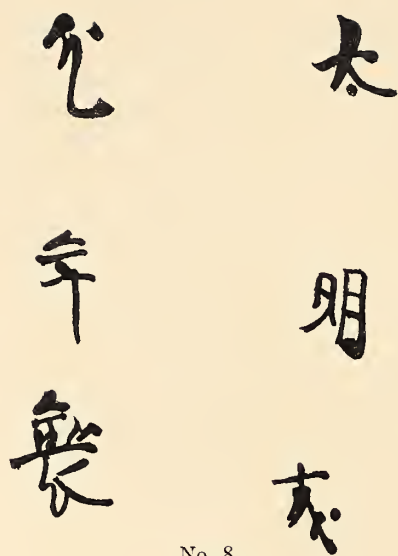 太明成
化年製
No. 8